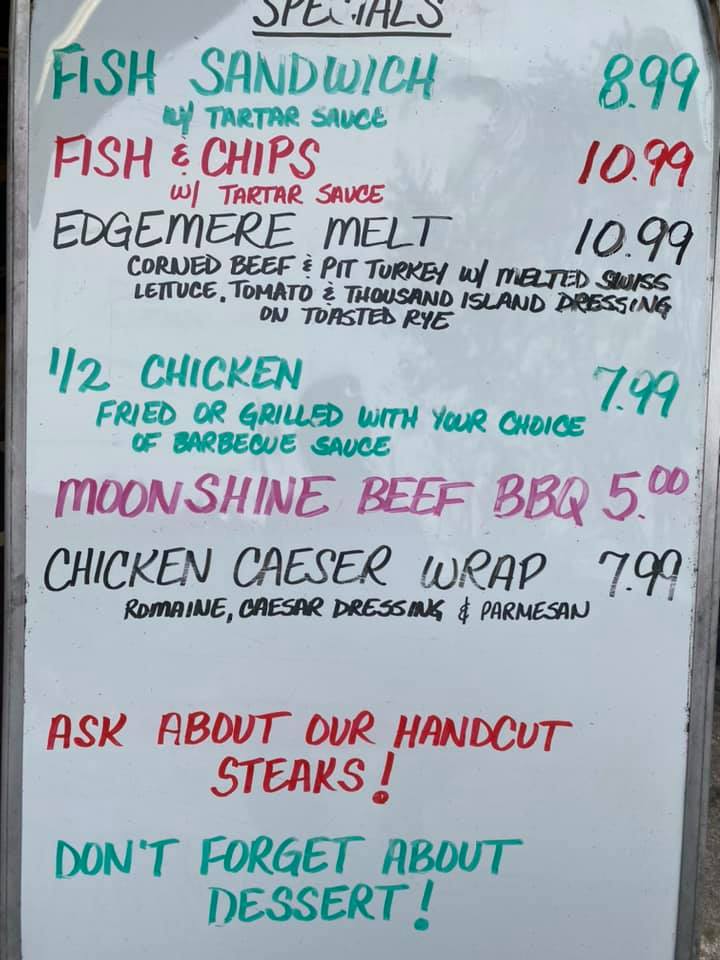 SPECIALS
FISH SANDWICH 8.99
W/ TARTAR SAUCE
FISH & CHIPS 10.99
W/ TARTAR SAUCE
EDGEMERE MELT 10.99
CORNED BEEF & PIT TURKEY W/ MELTED SWISS
LETTUCE, TOMATO & THOUSAND ISLAND DRESSING
ON TOASTED RYE
1/2 CHICKEN 7.99
FRIED OR GRILLED WITH YOUR CHOICE
OF BARBECUE SAUCE
MOONSHINE BEEF BBQ 5.00
CHICKEN CAESER WRAP 7.99
ROMAINE, CAESAR DRESSING & PARMESAN
ASK ABOUT OUR HANDCUT
STEAKS!
DON'T FORGET ABOUT
DESSERT!